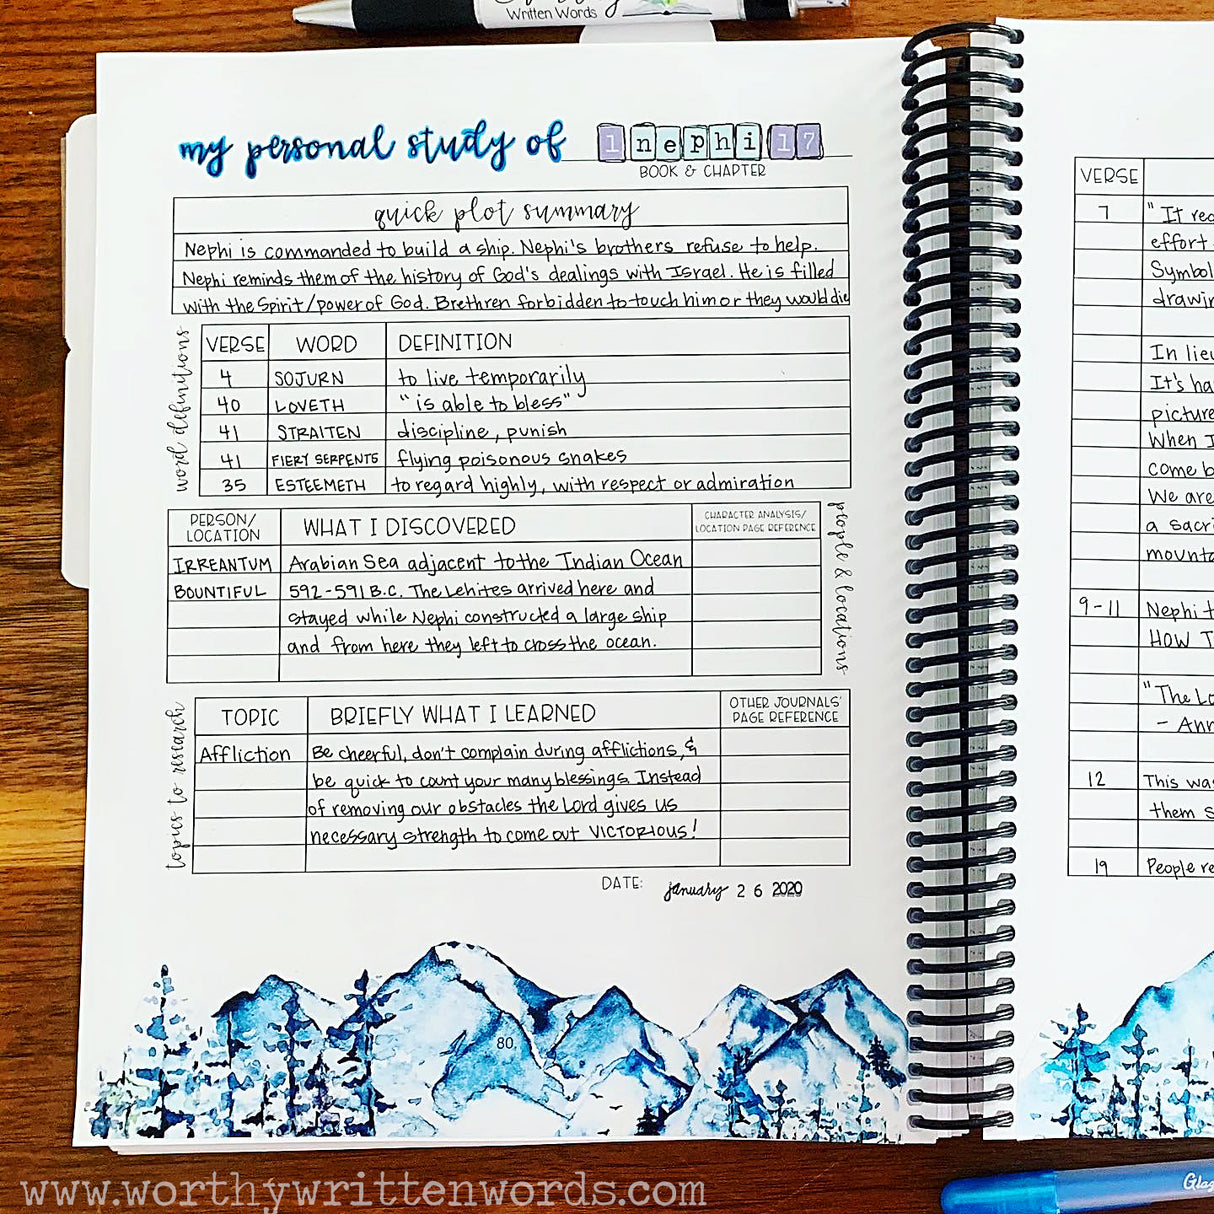 Written Words
my personal study of 1 nephi 17
BOOK & CHAPTER
quick plot summary
Nephi is commanded to build a ship. Nephi's brothers refuse to help.
Nephi reminds them of the history of God's dealings with Israel. He is filled
with the Spirit/power of God. Brethren forbidden to touch him or they would die
word definitions
VERSE WORD DEFINITION
4 SOJURN to live temporarily
40 LOVETH "is able to bless"
41 STRAITEN discipline, punish
41 FIERY SERPENTS flying poisonous snakes
35 ESTEEMETH to regard highly, with respect or admiration
people & locations
PERSON/ LOCATION WHAT I DISCOVERED CHARACTER ANALYSIS/ LOCATION PAGE REFERENCE
IRREANTUM Arabian Sea adjacent to the Indian Ocean
BOUNTIFUL 592-591 B.C. The Lehites arrived here and
stayed while Nephi constructed a large ship
and from here they left to cross the ocean.
topics to research
TOPIC BRIEFLY WHAT I LEARNED OTHER JOURNALS' PAGE REFERENCE
Affliction Be cheerful, don't complain during afflictions, &
be quick to count your many blessings. Instead
of removing our obstacles the Lord gives us
necessary strength to come out VICTORIOUS!
DATE: january 26 2020
80
VERSE
7 "It
effort
In
It's
When I
come
We are
a
9-11 Nephi
HOW
"The
-
12 This
them
19 People
www.worthywrittenwords.com